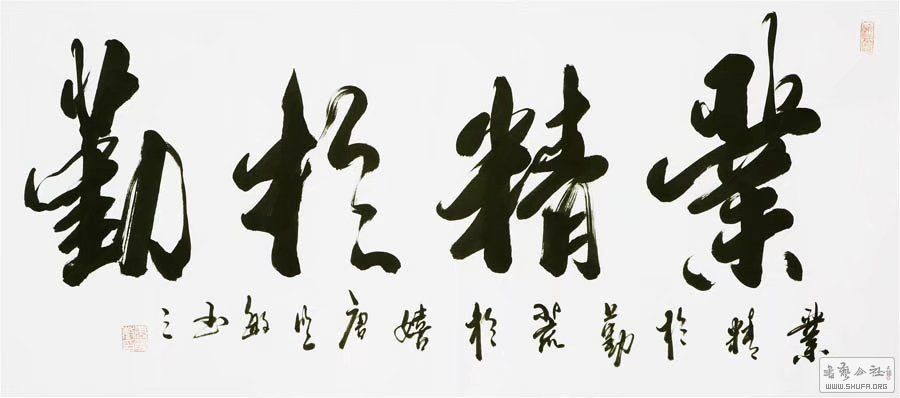 業精於勤
業精於勤荒於嬉唐敏书之
書藝公社
WWW.SHUFA.ORG